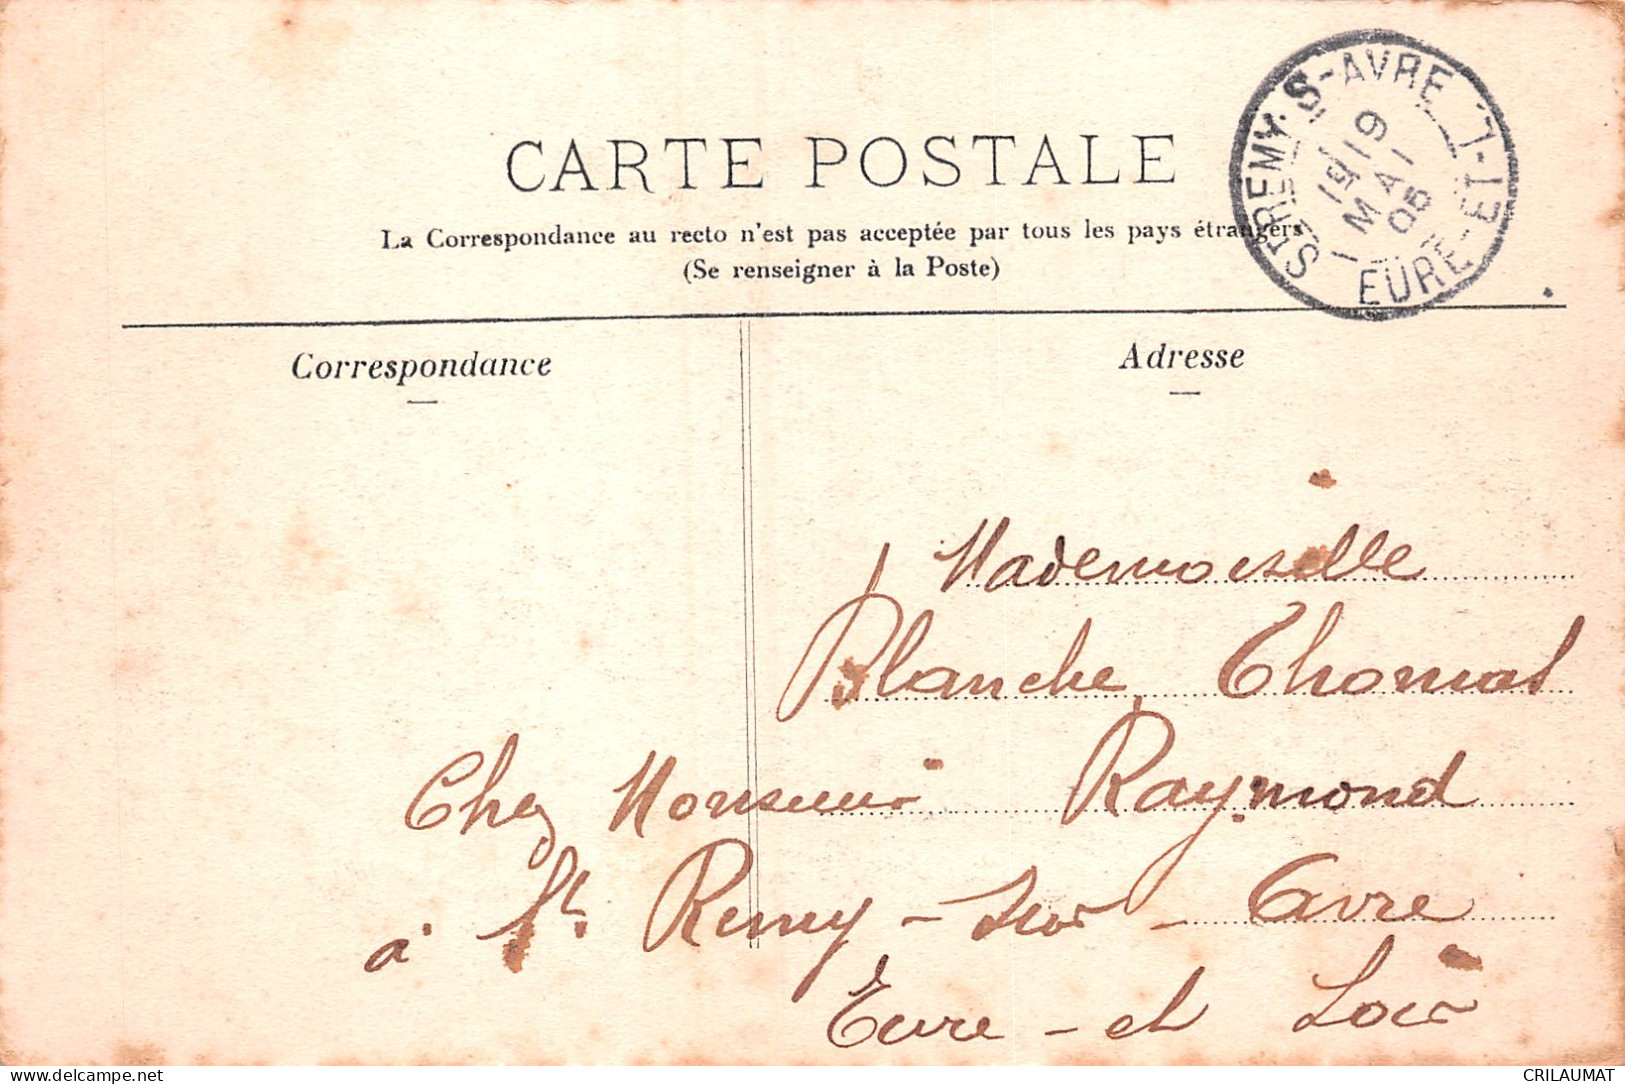 CARTE POSTALE
La Correspondance au recto n'est pas acceptée par tous les pays étrangers
(Se renseigner à la Poste)
ST REMY. S-AVRE
19
MAI
05
EURE-ET-L
Correspondance
Adresse
Mademoiselle
Blanche Thomas
Chez Monsieur Raymond
à St. Remy-sur-Avre
Eure-et Loir
www.delcampe.net
CRILAUMAT